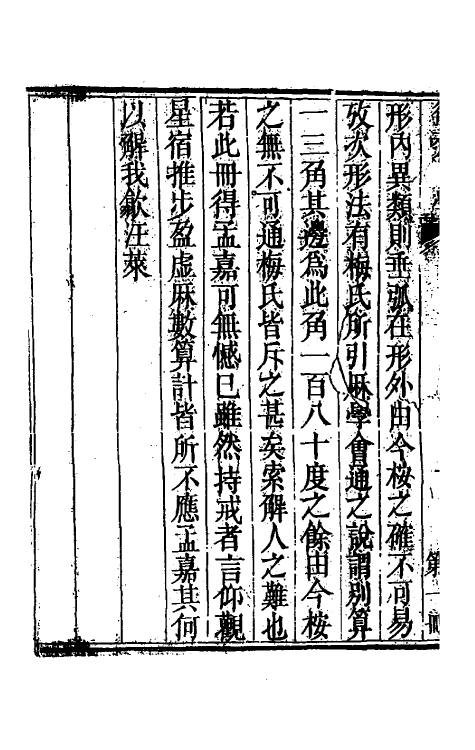 形內異類則垂弧在形外由今桉之確不可易
攷次形法有梅氏所引厤學會通之說謂別算
一三角其邊爲此角一百八十度之餘由今桉
之無不可通梅氏皆斥之甚矣索解人之難也
若此冊得孟嘉可無憾已雖然持戒者言仰觀
星宿推步盈虛厤數算計皆所不應孟嘉其何
以解我歙汪萊
第一冊